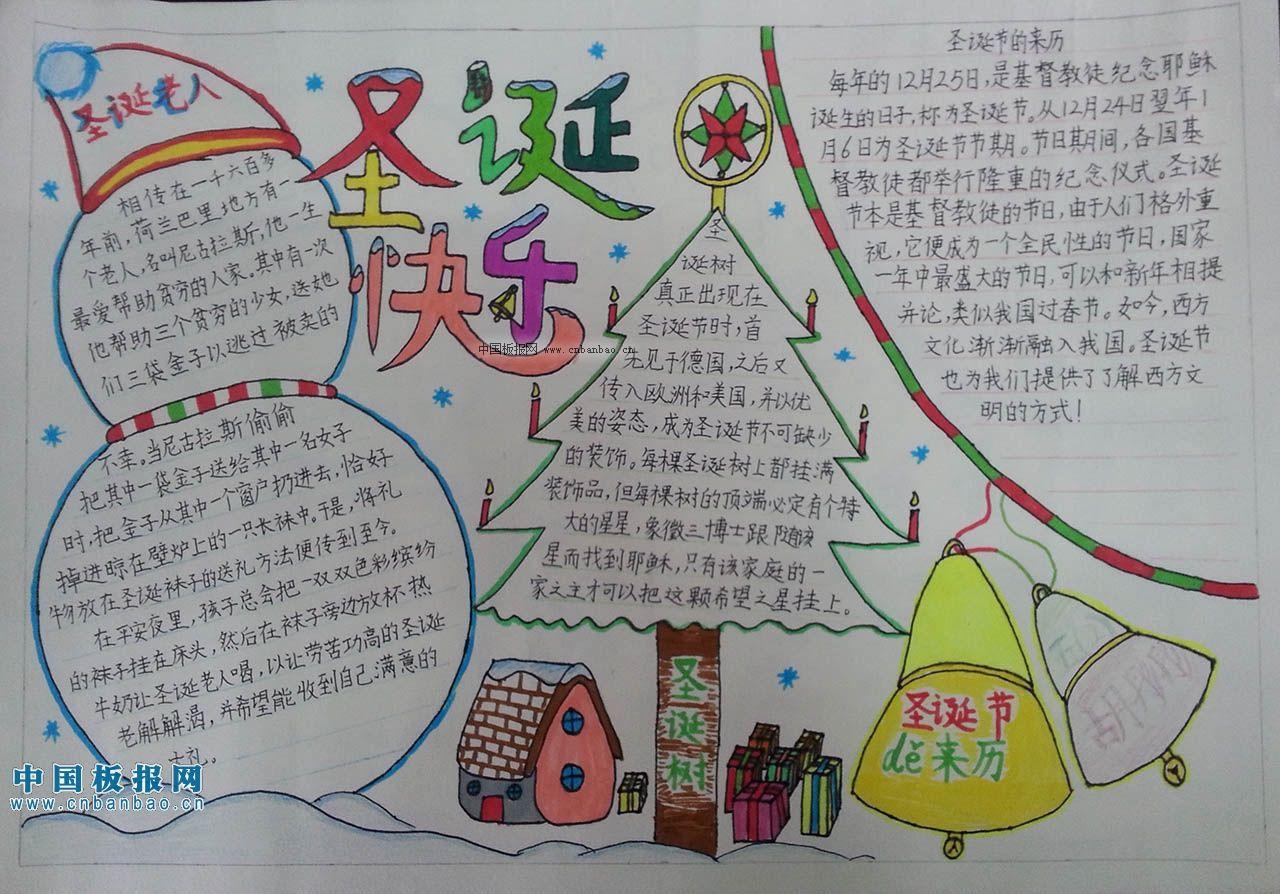 圣诞老人
相传在一千六百多
年前，荷兰巴里地方有一
个老人，名叫尼古拉斯，他一生
最爱帮助贫穷的人家。其中有一次
他帮助三个贫穷的少女，送她
们三袋金子以逃过被卖的
不幸。当尼古拉斯偷偷
把其中一袋金子送给其中一名女子
时，把金子从其中一个窗户扔进去，恰好
掉进晾在壁炉上的一只长袜中。于是，将礼
物放在圣诞袜子的送礼方法便传到至今。
在平安夜里，孩子总会把一双双色彩缤纷
的袜子挂在床头，然后在袜子旁边放杯热
牛奶让圣诞老人喝，以让劳苦功高的圣诞
老解解渴，并希望能收到自己满意的
礼。
圣诞
快乐
中国板报网 www.cnbanbao.cn
圣
诞树
真正出现在
圣诞节时，首
先见于德国，之后又
传入欧洲和美国，并以优
美的姿态，成为圣诞节不可缺少
的装饰。每棵圣诞树上都挂满
装饰品，但每棵树的顶端必定有个特
大的星星，象徵三博士跟随该
星而找到耶稣，只有该家庭的一
家之主才可以把这颗希望之星挂上。
圣诞树
圣诞节的来历
每年的12月25日，是基督教徒纪念耶稣
诞生的日子，称为圣诞节。从12月24日翌年1
月6日为圣诞节节期。节日期间，各国基
督教徒都举行隆重的纪念仪式。圣诞
节本是基督教徒的节日，由于人们格外重
视，它便成为一个全民性的节日，国家
一年中最盛大的节日，可以和新年相提
并论，类似我国过春节。如今，西方
文化渐渐融入我国。圣诞节
也为我们提供了了解西方文
明的方式！
圣诞节
dě来历
中国板报网
www.cnbanbao.cn